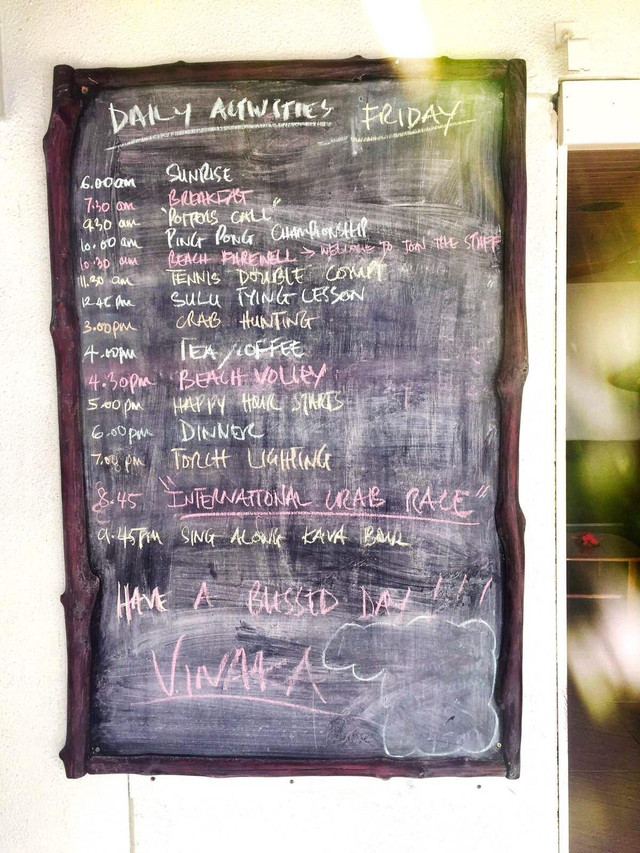 DAILY ACTIVITIES FRIDAY
6.00am SUNRISE
7.30 am BREAKFAST
9.30 am "POITERS CALL"
10.00 am PING PONG CHAMPIONSHIP
10.30 am BEACH FAREWELL → WELCOME TO JOIN THE STAFF
11.30 am TENNIS DOUBLE COMPT
12.45 pm SULU TYING LESSON
3.00pm CRAB HUNTING
4.00pm TEA/COFFEE
4.30pm BEACH VOLLEY
5.00pm HAPPY HOUR STARTS
6.00pm DINNER
7.00 pm TORCH LIGHTING
8.45 "INTERNATIONAL CRAB RACE"
9.45pm SING ALONG KAVA BOWL
HAVE A BLESSED DAY !!!
VINAKA